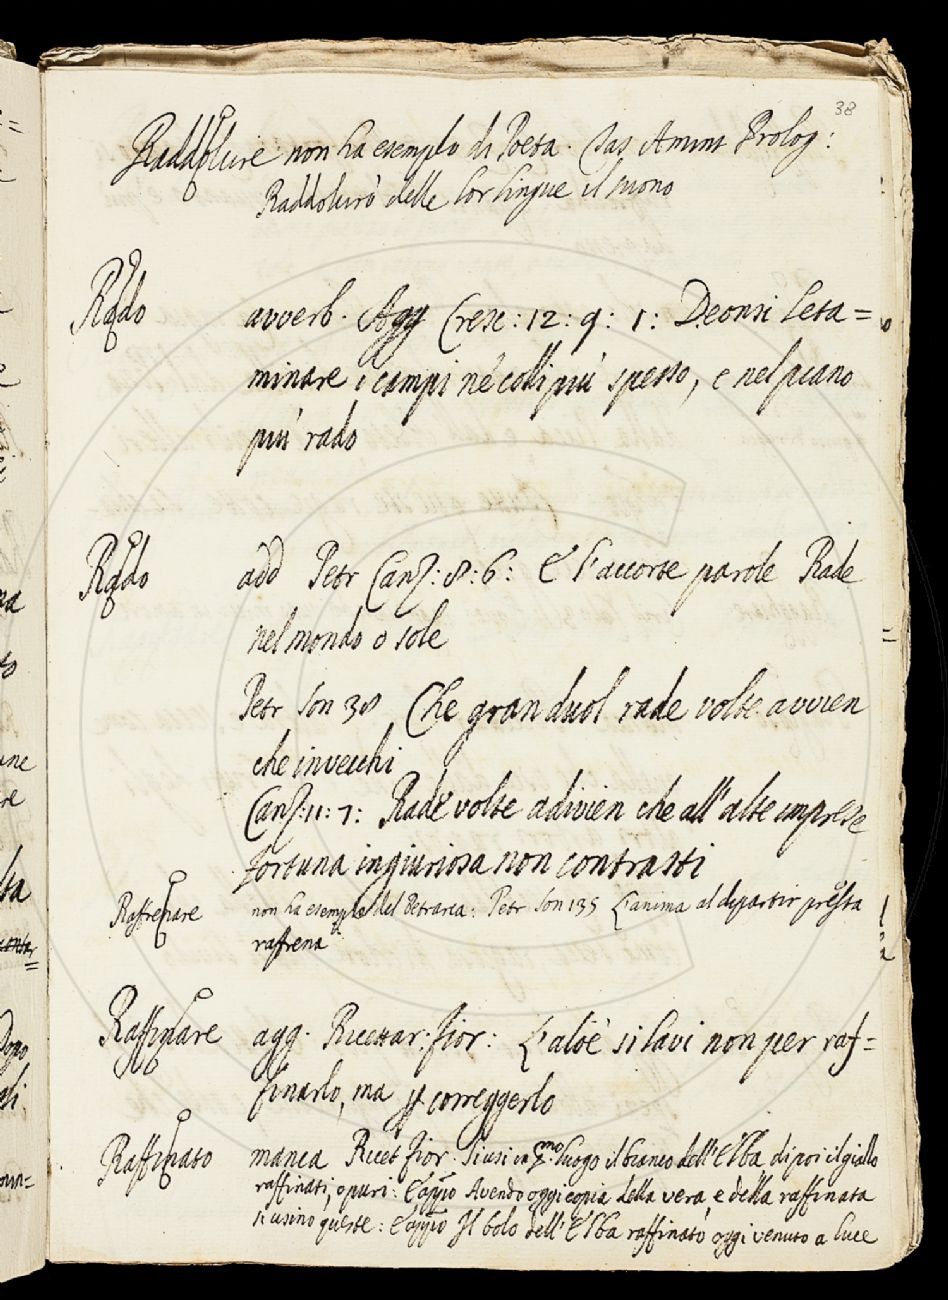 38
Raddolcire non ha esempio di Poeta. Tas Amint Prolog:
Raddolcirò delle lor lingue il suono
Rado avverb. Agg Cresc: 12: 9: 1: Deonsi leta=
minare i campi ne' colli più spesso, e nel piano
più rado
Rado add Petr Canz: 8: 6: E l'accorte parole Rade
nel mondo o sole
Petr Son 38 Che gran duol rade volte avvien
che invecchi
Canz: 11: 7: Rade volte adivien che all'alte imprese
fortuna ingiuriosa non contrasti
Raffrenare non ha esemple del Petrarca: Petr Son 135 L'anima al dipartir presta
rafrena
Raffinare agg. Ricettar: fior: L'aloè si lavi non per raf=
finarlo, ma p correggerlo
Raffinato manca Ricet fior. Si usi in p.mo luogo il bianco dell'Elba di poi il giallo
raffinati, o puri: E appo Avendo oggi copia della vera, e della raffinata
si usino queste: E appo Il bolo dell'Elba raffinato oggi venuto a luce